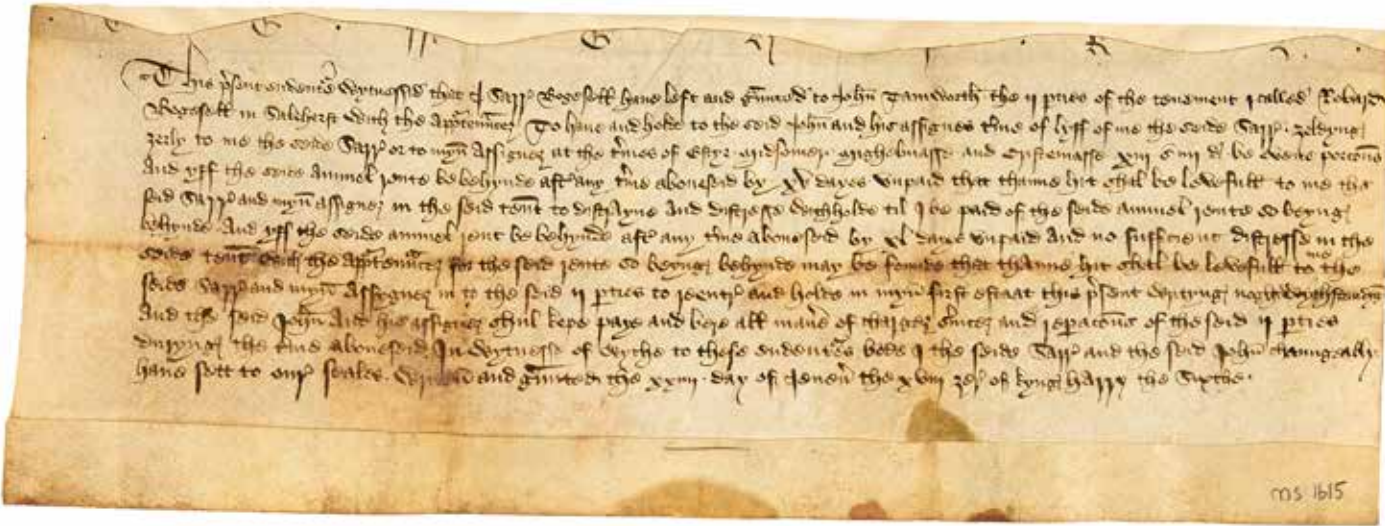 This p'sent endent'e Wytnessid that I Sarr' Bogesell have lest and g'unted to John Tamworth the ii p'ties of the tenement I called Robard
Bogesell in Saleherst with the app'ten'ncez To have and holde to the seid John and his assignes t'me of lyff of me the seide Sarr' zeldyng
zerly to me the seide Sarr' or to myn Assignez at the t'mes of Estyr Midsomer Mighelmasse and Cristemasse xiii s iiii d be evene porcions
And yff the seide Annuel rente be behynde aft' any t'me aboveseid by xv dayes unpaid that thanne hit shal be lawefull to me the
seid Sarr' and myn assignez in the seid ten't to distrayne And distresse withholde til I be paid of the seide annuel rente so beyng
behynde And yff the seide annuel rent be behynde aft' any t'me aboveseid by xl daies unpaid And no sufficient distresse in the
seide ten't with the app'ten'ncez for the seid rente so beyng behynde may be founde that thanne hit shal be lawefull to me the
seide Sarr' and myn Assygnez in to the seid ii p'ties to reentr' and holde in myn first estaat this p'sent wrytyng noght withstondyng
And the seid John And his assignez shul kepe paye and bere all man'e of chargez s'vicez and reparacions of the seid ii p'ties
duryng the t'me aboveseid In Wytnesse of wyche to these endent'es bothe I the seide Sarr' and the seid John chaungeably
have sett to our' seales Wretun and g'unted the xxiiii day of Jenever the xviii zer of kyng Harry the Sixthe
MS 1615